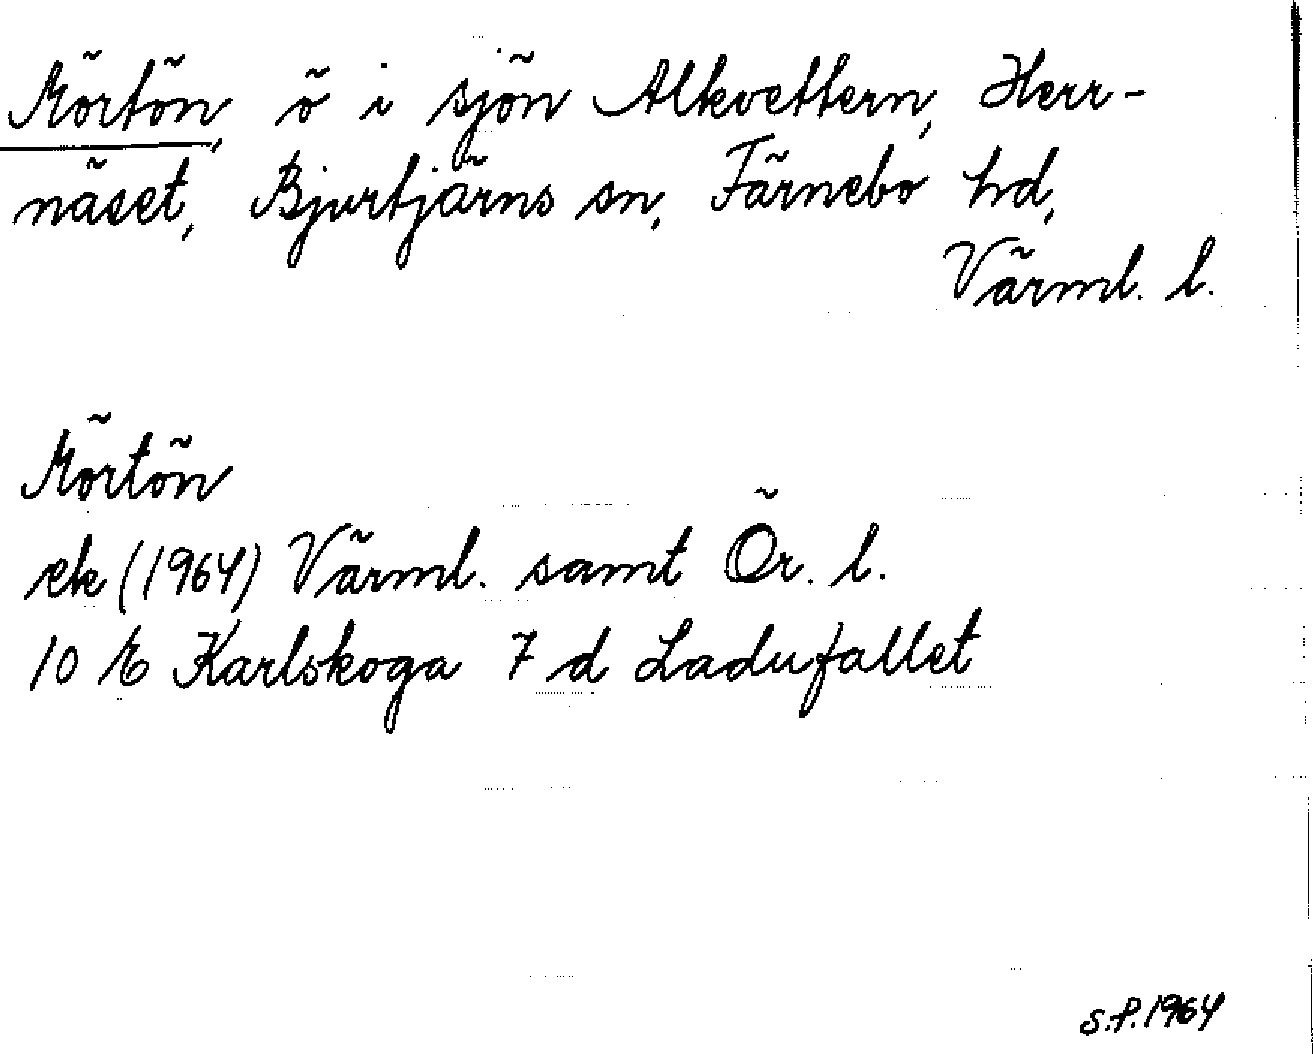 Mörtön, ö i sjön Alkvettern, Herr-
näset, Bjurtjärns sn, Färnebo hd,
Värml. l.
Mörtön
ek (1964) Värml. samt Ör. l.
10 E Karlskoga 7 d Ladufallet
S.P. 1964